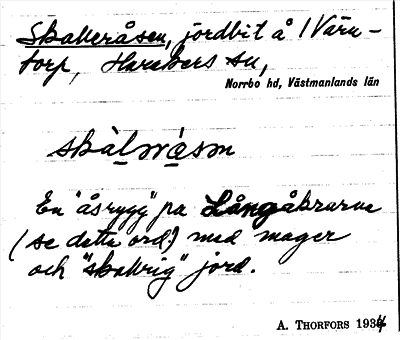 Skalleråsen, jordbit å 1 Värn-
torp, Harakers sn,
Norrbo hd, Västmanlands län
skàlωrá̀sωn
En "åsrygg" på Långåkrarna
(se detta ord.) med mager
och "skallrig" jord.
A. THORFORS 1934